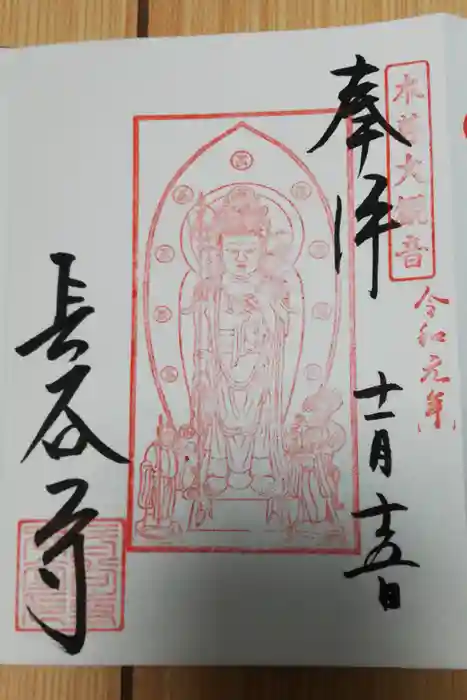 本尊大観音
奉拝
令和元年
十一月十五日
長谷寺